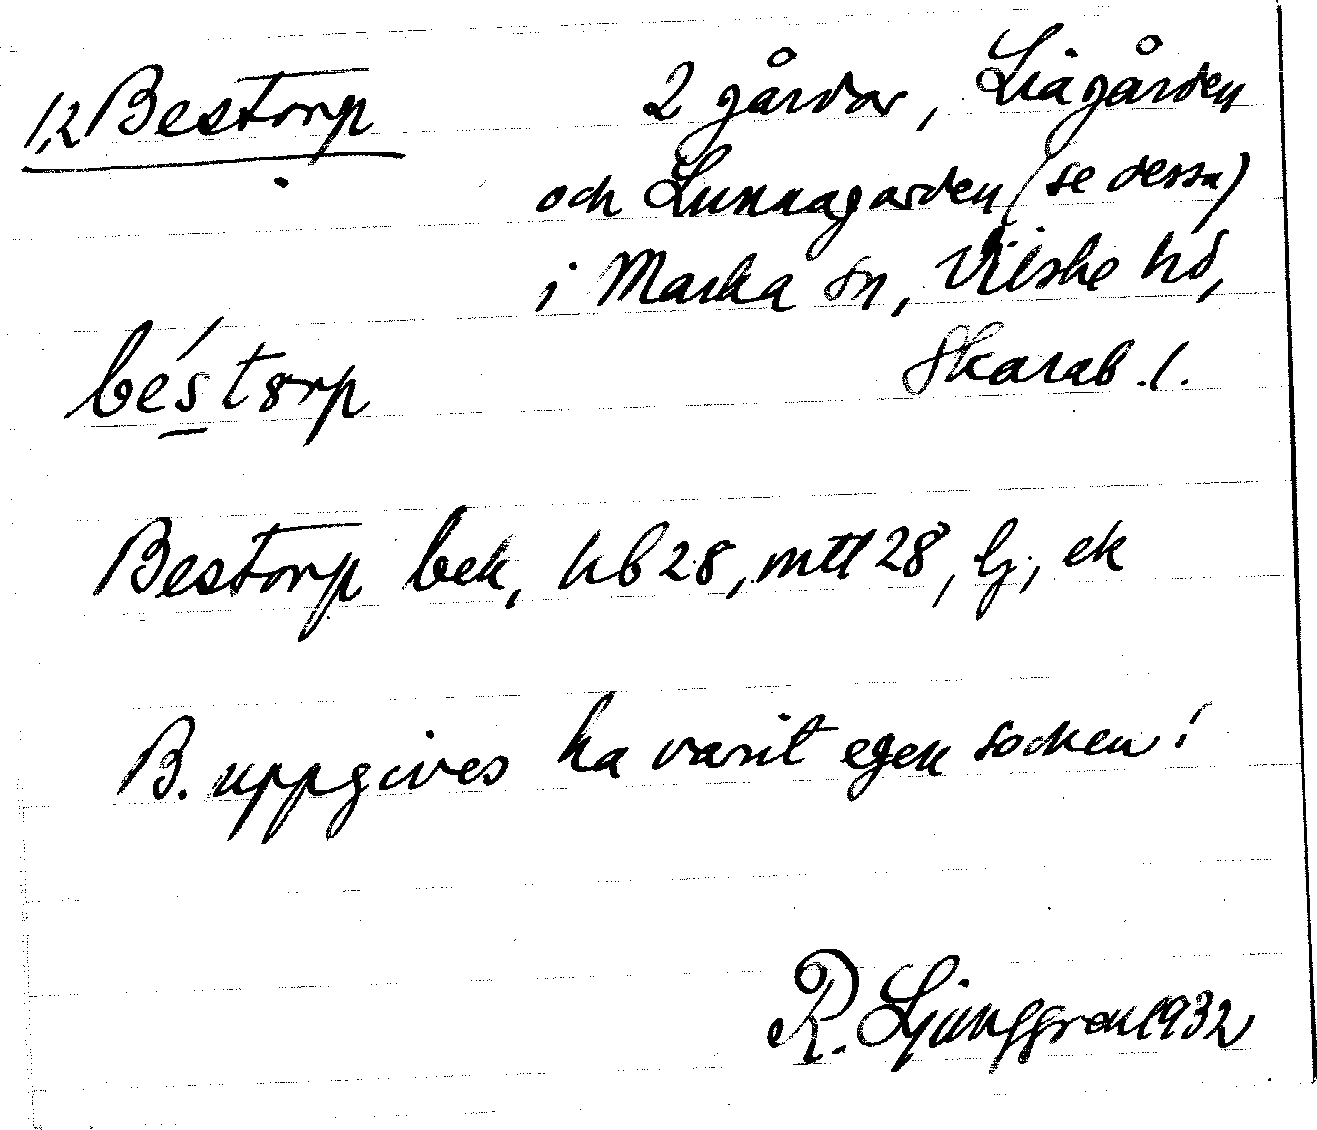 1,2 Bestorp 2 gårdar, Liagården
och Lunnagarden (se dessa)
i Marka sn, Vilske hd,
Skarab. l.
béstorp
Bestorp bek, hb 28, mtl 28, lj, ek
B. uppgives ha varit egen socken!
R. Ljunggren 1932